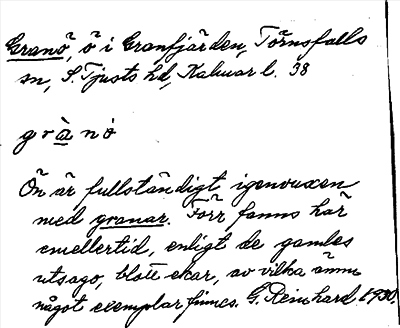 Granö, ö i Granfjärden, Törnsfalls
sn, S. Tjusts hd, Kalmar l. 38
grànö
Ön är fullständigt igenvuxen
med granar. Förr fanns här
emellertid, enligt de gamles
utsago, blott ekar, av vilka ännu
något exemplar finnes. G. Reinhard. 1930.